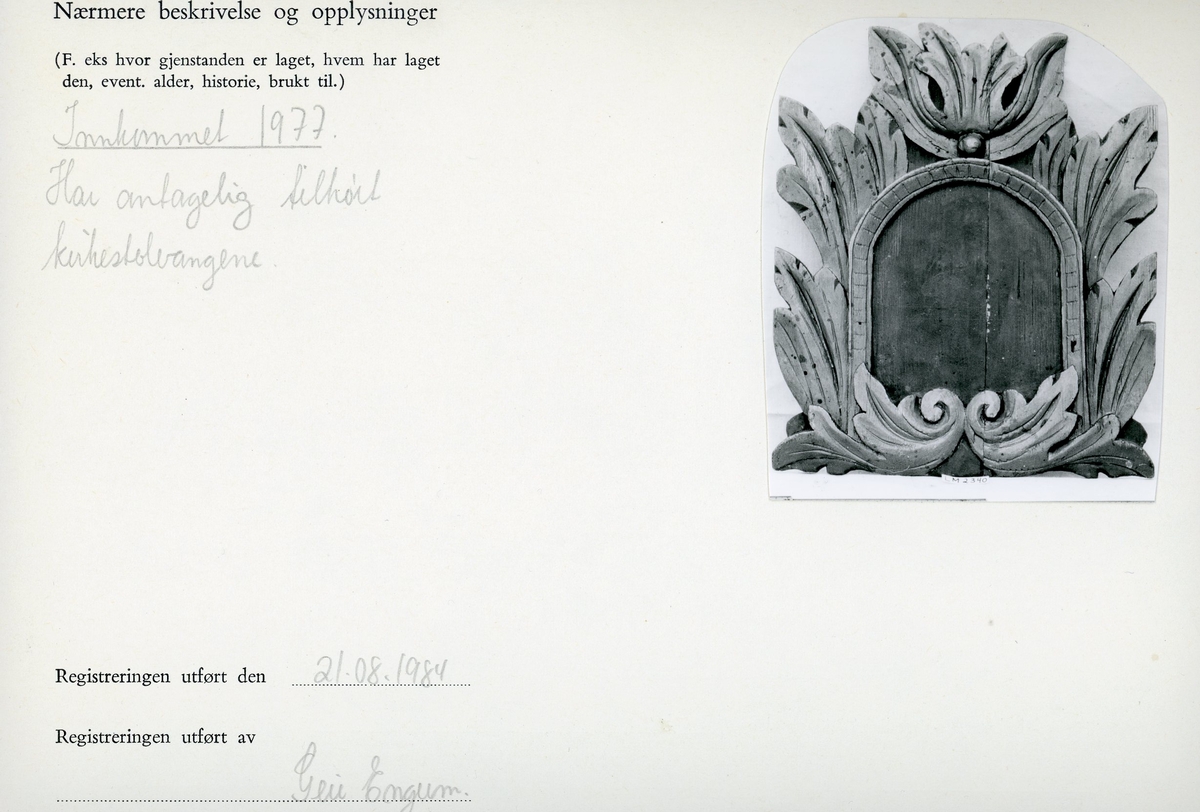 Nærmere beskrivelse og opplysninger
(F. eks hvor gjenstanden er laget, hvem har laget
den, event. alder, historie, brukt til.)
Innkommet 1977.
Har antagelig tilhørt
kirkestolvangene.
M 2340
Registreringen utført den 21.08.1984
Registreringen utført av
Geir Engum.